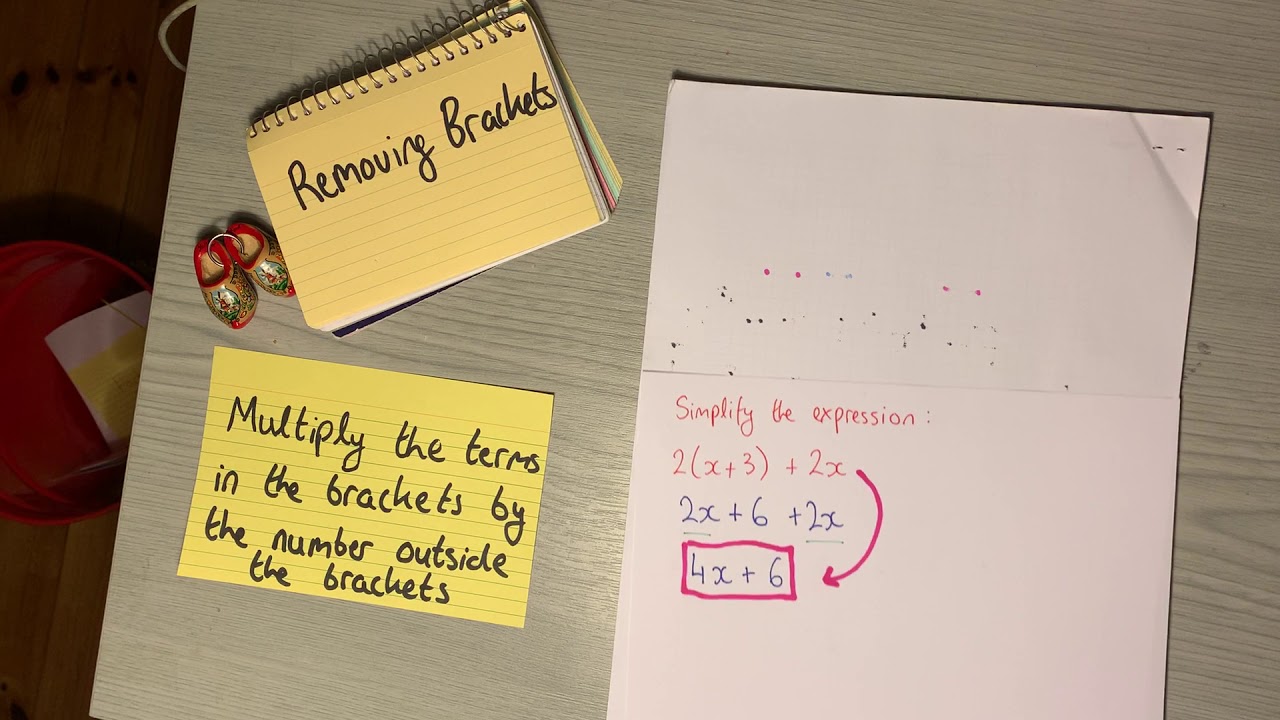 Removing Brackets
Multiply the terms
in the brackets by
the number outside
the brackets
Simplify the expression:
2(x+3) + 2x
2x + 6 + 2x
4x + 6